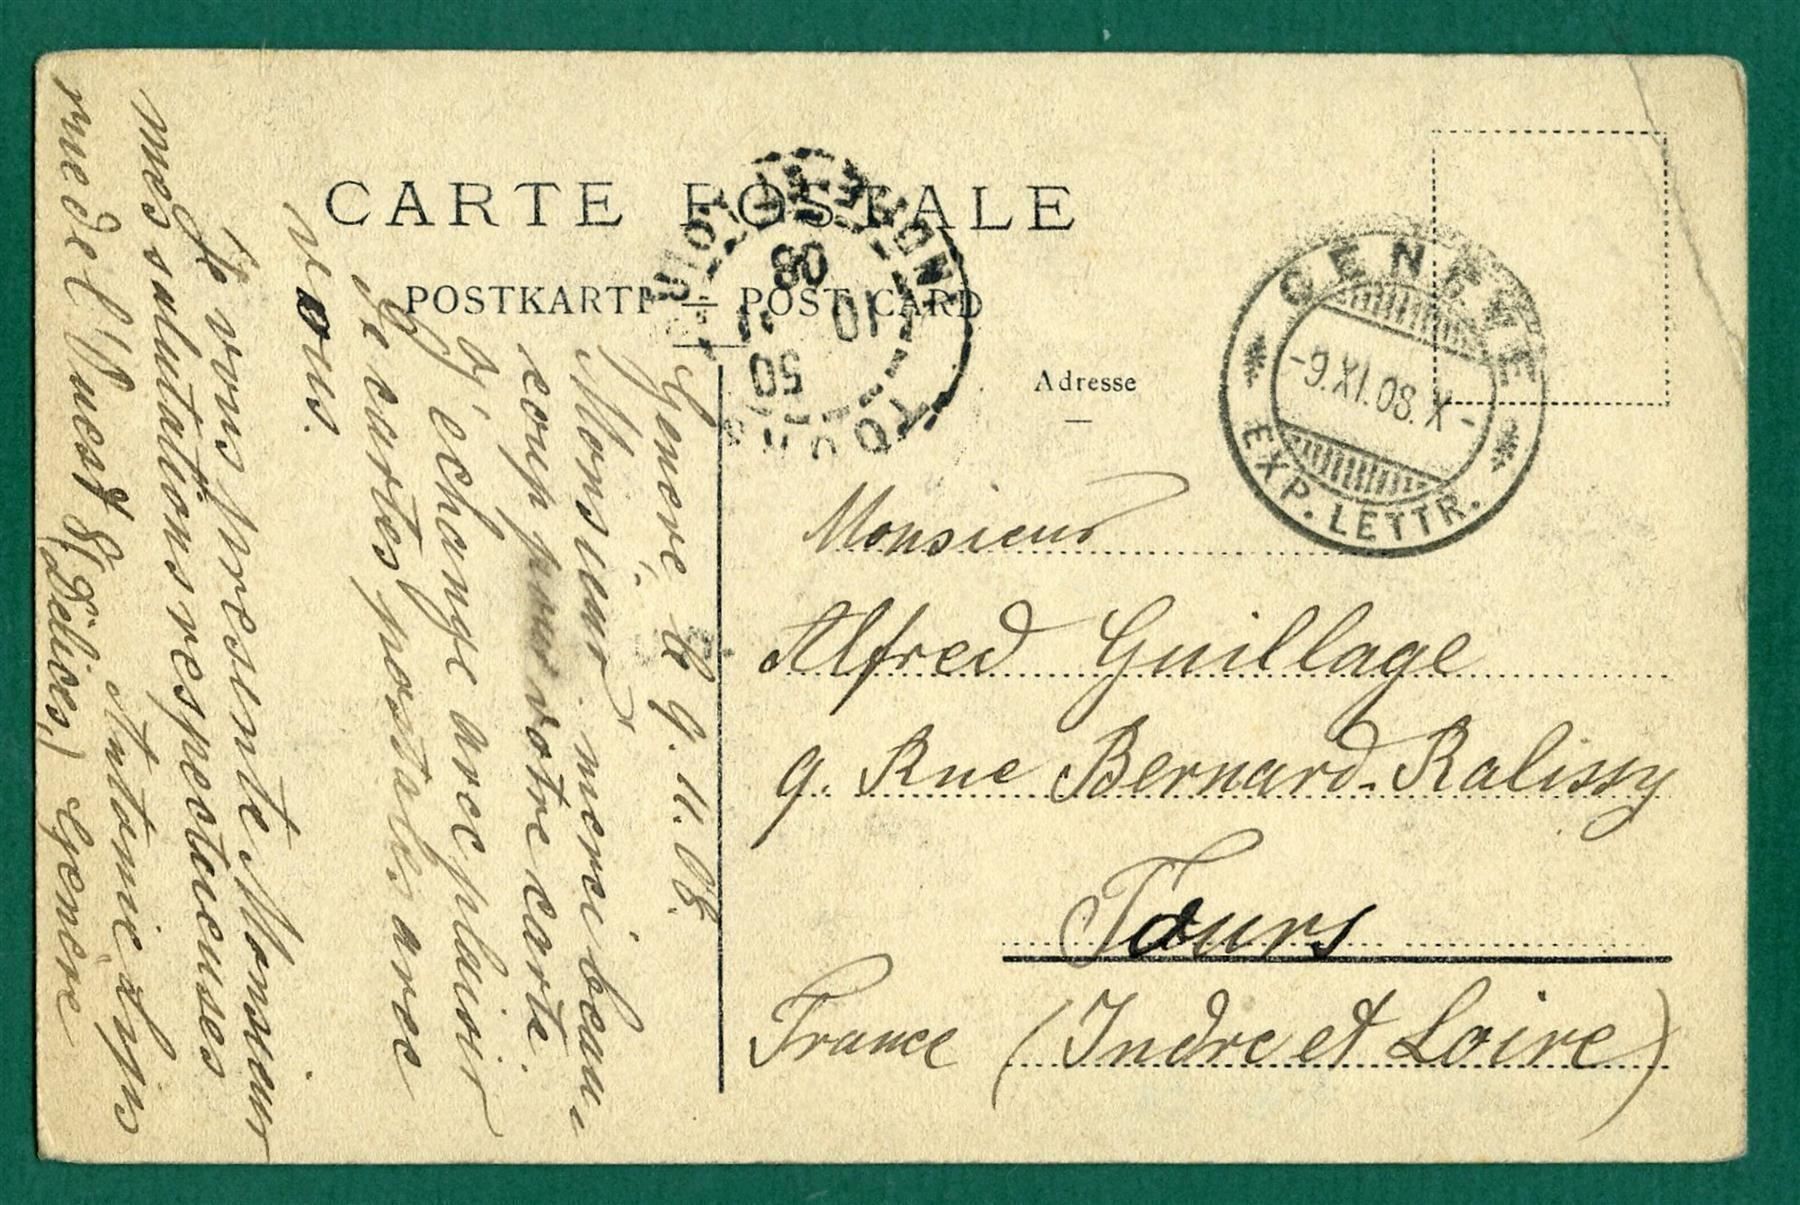 CARTE POSTALE
POSTKARTE — POST CARD
Adresse
GENÈVE
-9.XI.08.X-
EXP. LETTR.
TOURS
11
50
10
08
Genève, le 9. 11. 08.
Monsieur. merci beau-
coup pour votre carte.
J'échange avec plaisir
de cartes postales avec
vous.
Je vous presente, Monsieur
mes salutations respectueuses
Antonie
rue de l'Ouest 8 (Délices,) Genève
Monsieur
Alfred Guillage
9. Rue Bernard-Palissy
Tours
France (Indre et Loire)